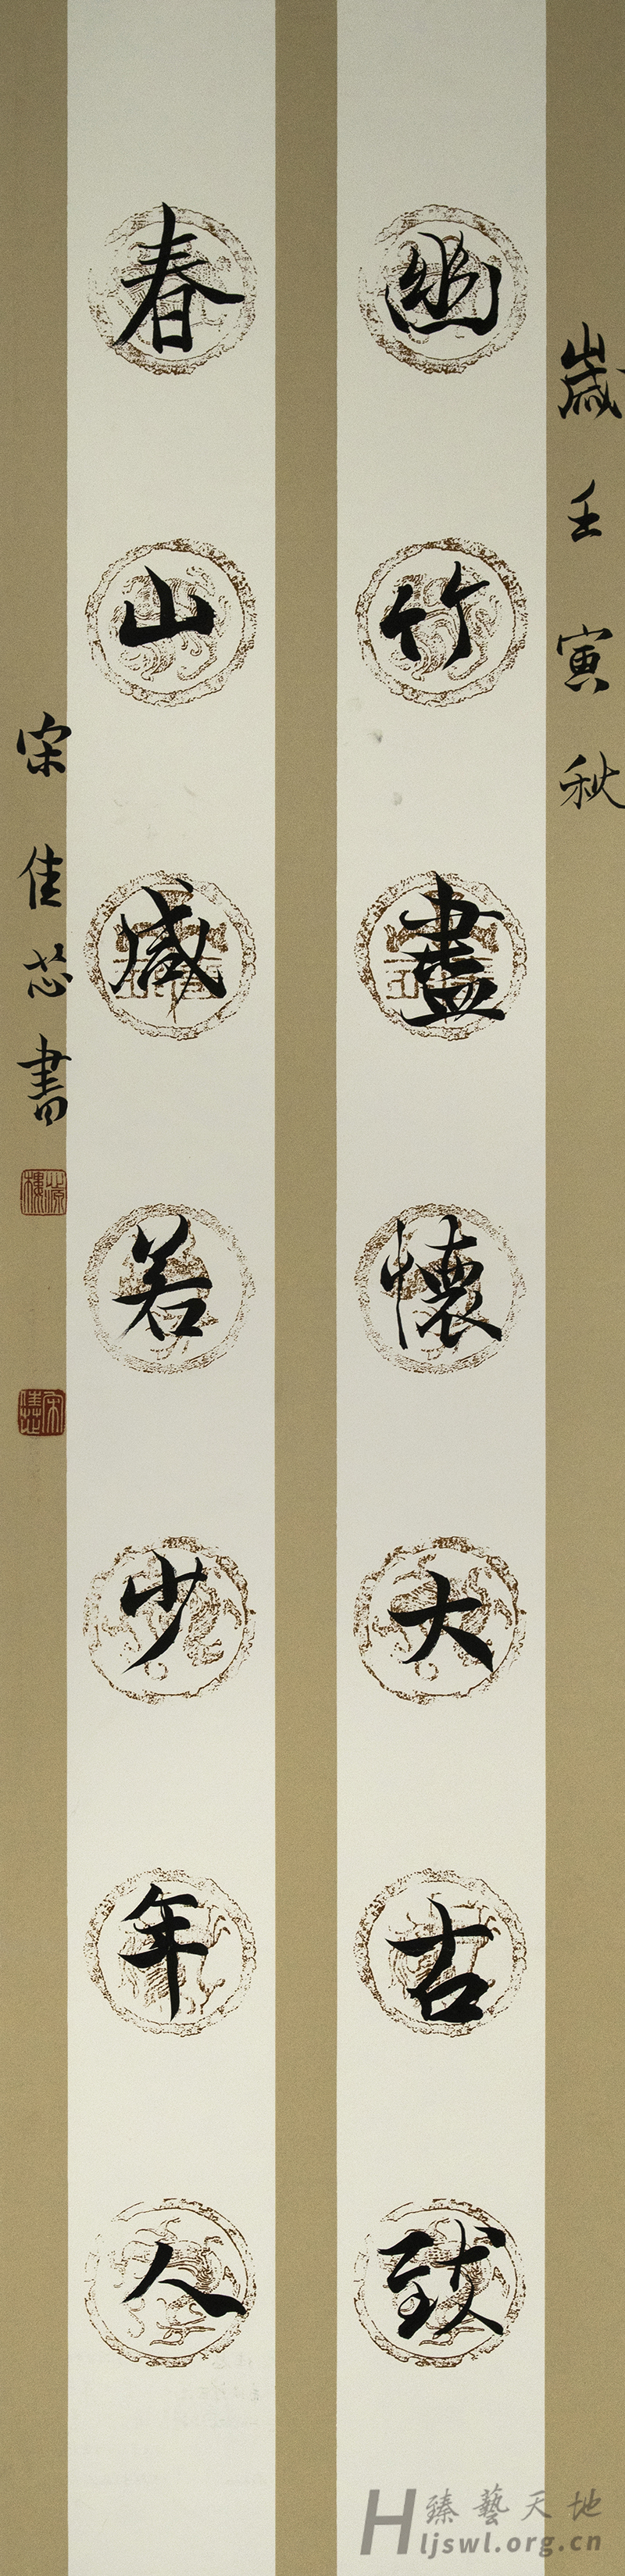 歲壬寅秋
幽竹盡懷大古致
春山咸若少年人
宋佳芯書
H 臻藝天地
ljswl.org.cn